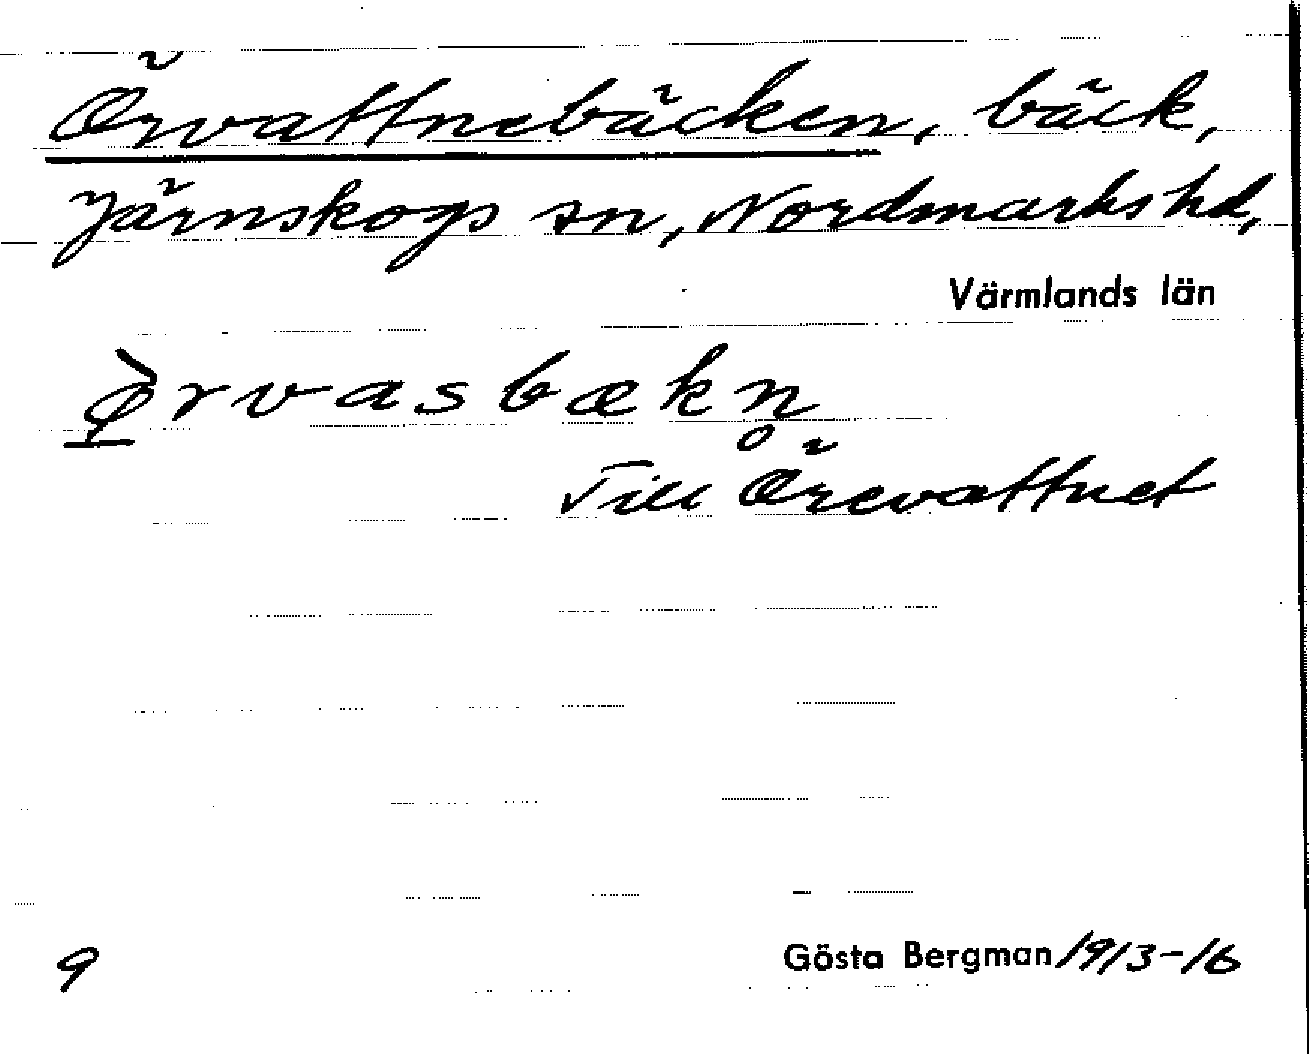 Örvattnebäcken, bäck,
Järnskogs sn, Nordmarks hd,
Värmlands län
ø̠̀rvasbækn̥
Till Örevattnet
9
Gösta Bergman 1913-16